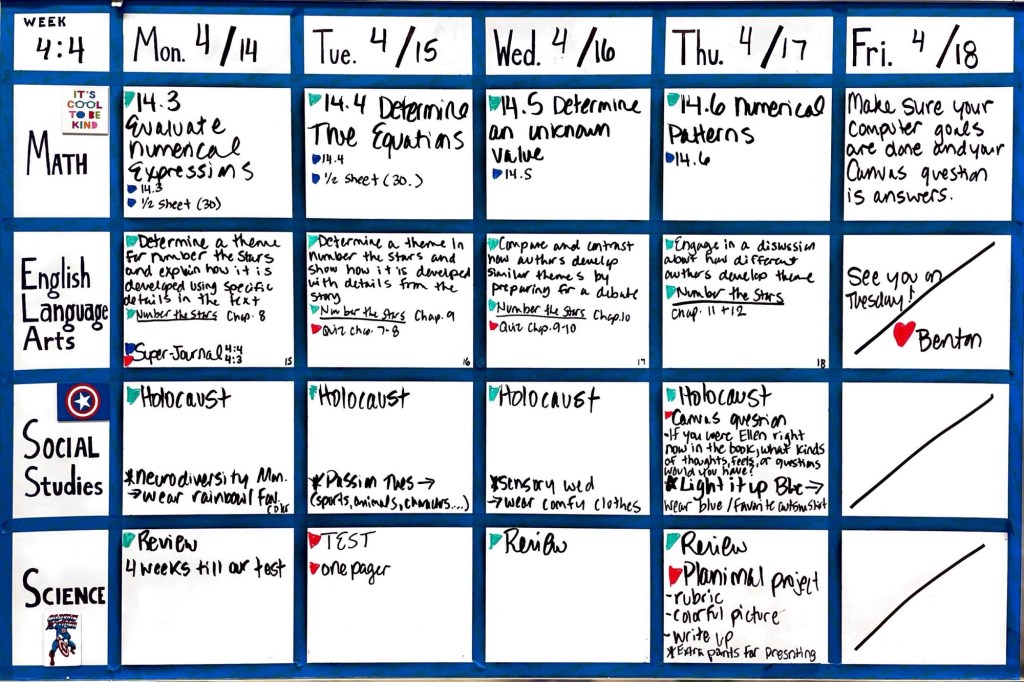 WEEK
4:4
Mon. 4/14
Tue. 4/15
Wed. 4/16
Thu. 4/17
Fri. 4/18
IT'S
COOL
TO BE
KIND
MATH
14.3
Evaluate
numerical
Expressions
14.3
1/2 sheet (30)
14.4 Determine
True Equations
14.4
1/2 sheet (30.)
14.5 Determine
an unknown
value
14.5
14.6 Numerical
Patterns
14.6
Make sure your
computer goals
are done and your
Canvas question
is answers.
English
Language
Arts
Determine a theme
for number the Stars
and explain how it is
developed using specific
details in the text
Number the Stars Chap. 8
Super-Journal 4:4
4:3
15
Determine a theme in
number the Stars and
show how it is developed
with details from the
story
Number the Stars Chap. 9
Quiz chap. 7-8
16
Compare and contrast
how authors develop
similar themes by
preparing for a debate
Number the Stars Chap.10
Quiz Chap. 9-10
17
Engage in a disussion
about how different
authors develop theme
Number the Stars
Chap. 11 + 12
18
See you on
Tuesday!
Benton
SOCIAL
Studies
Holocaust
*Neurodiversity Mon.
→wear rainbow/ fav.
color
Holocaust
*Passion Tues→
(sports, animals, characters....)
Holocaust
*Sensory wed
→wear comfy clothes
Holocaust
Canvas question
-If you were Ellen right
now in the book, what kinds
of thoughts, feels, or questions
would you have?
*Light it up Blue→
wear blue /favorite shirt
SCIENCE
Review
4 weeks till our test
TEST
one pager
Review
Review
Planimal project
-rubric
-colorful picture
-write up
*Extra points for Presenting